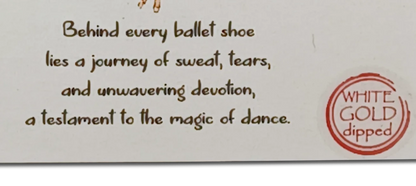 Behind every ballet shoe
lies a journey of sweat, tears,
and unwavering devotion,
a testament to the magic of dance.
WHITE
GOLD
dipped